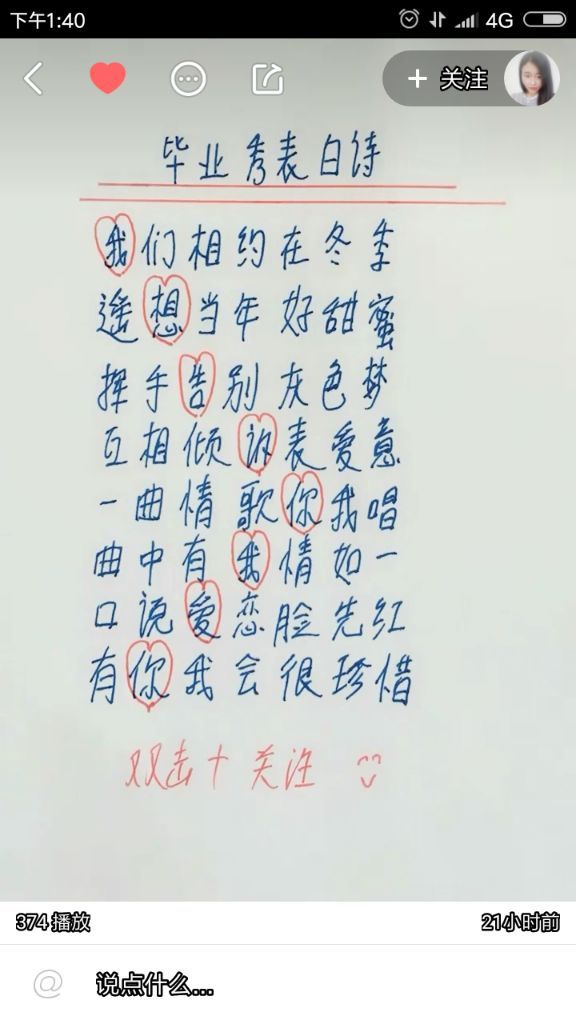 下午1:40
4G
+ 关注
毕业秀表白诗
我们相约在冬季
遥想当年好甜蜜
挥手告别灰色梦
互相倾诉表爱意
一曲情歌你我唱
曲中有我情如一
口说爱恋脸先红
有你我会很珍惜
双击十关注
374 播放
21小时前
@ 说点什么...